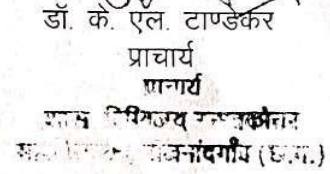 डॉ. के. एल. टाण्डेकर
प्राचार्य
प्राचार्य
शास. दिग्विजय
राजनांदगाँव (छ.ग.)